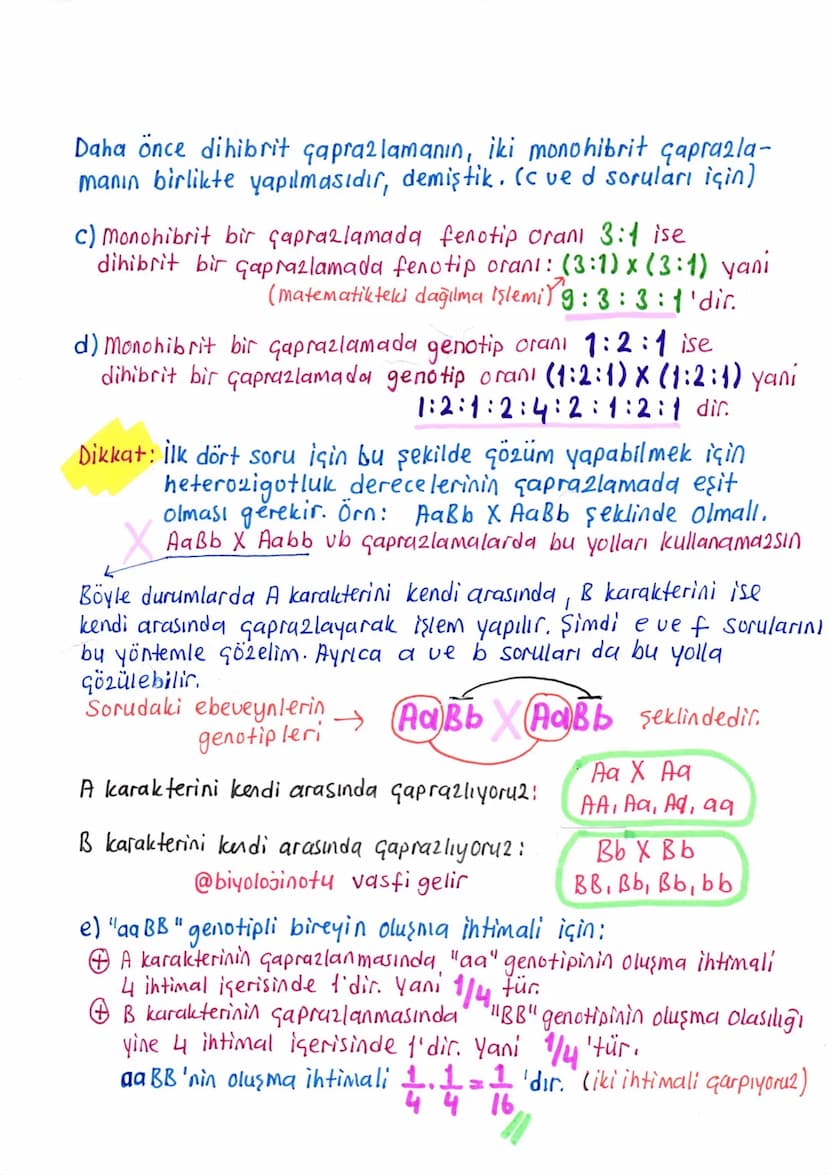 Daha önce dihibrit çaprazlamanın, iki monohibrit çaprazla-
manın birlikte yapılmasıdır, demiştik. (c ve d soruları için)
c) Monohibrit bir çaprazlamada fenotip oranı 3:1 ise
dihibrit bir çaprazlamada fenotip oranı: (3:1) x (3:1) yani
(matematikteki dağılma işlemi) 9:3:3:1'dir.
d) Monohibrit bir çaprazlamada genotip oranı 1:2:1 ise
dihibrit bir çaprazlamada genotip oranı (1:2:1) X (1:2:1) yani
1:2:1:2:4:2:1:2:1 dir.
Dikkat: İlk dört soru için bu şekilde çözüm yapabilmek için
heterozigotluk derecelerinin çaprazlamada eşit
olması gerekir. Örn: AaBb X AaBb şeklinde olmalı.
X AaBb X Aabb vb çaprazlamalarda bu yolları kullanamazsın
Böyle durumlarda A karakterini kendi arasında, B karakterini ise
kendi arasında çaprazlayarak işlem yapılır. Şimdi e ve f sorularını
bu yöntemle çözelim. Ayrıca a ve b soruları da bu yolla
çözülebilir.
Sorudaki ebeveynlerin → AaBb X AaBb şeklindedir.
genotipleri
A karakterini kendi arasında çaprazlıyoruz: Aa X Aa
AA, Aa, Aa, aa
B karakterini kendi arasında çaprazlıyoruz: Bb X Bb
@biyolojinotu vasfi gelir BB, Bb, Bb, bb
e) "aaBB" genotipli bireyin oluşma ihtimali için:
+ A karakterinin çaprazlanmasında "aa" genotipinin oluşma ihtimali
4 ihtimal içerisinde 1'dir. Yani 1/4 tür.
+ B karakterinin çaprazlanmasında "BB" genotipinin oluşma olasılığı
yine 4 ihtimal içerisinde 1'dir. Yani 1/4 'tür.
aaBB'nin oluşma ihtimali 1/4 . 1/4 = 1/16 'dır. (iki ihtimali çarpıyoruz)